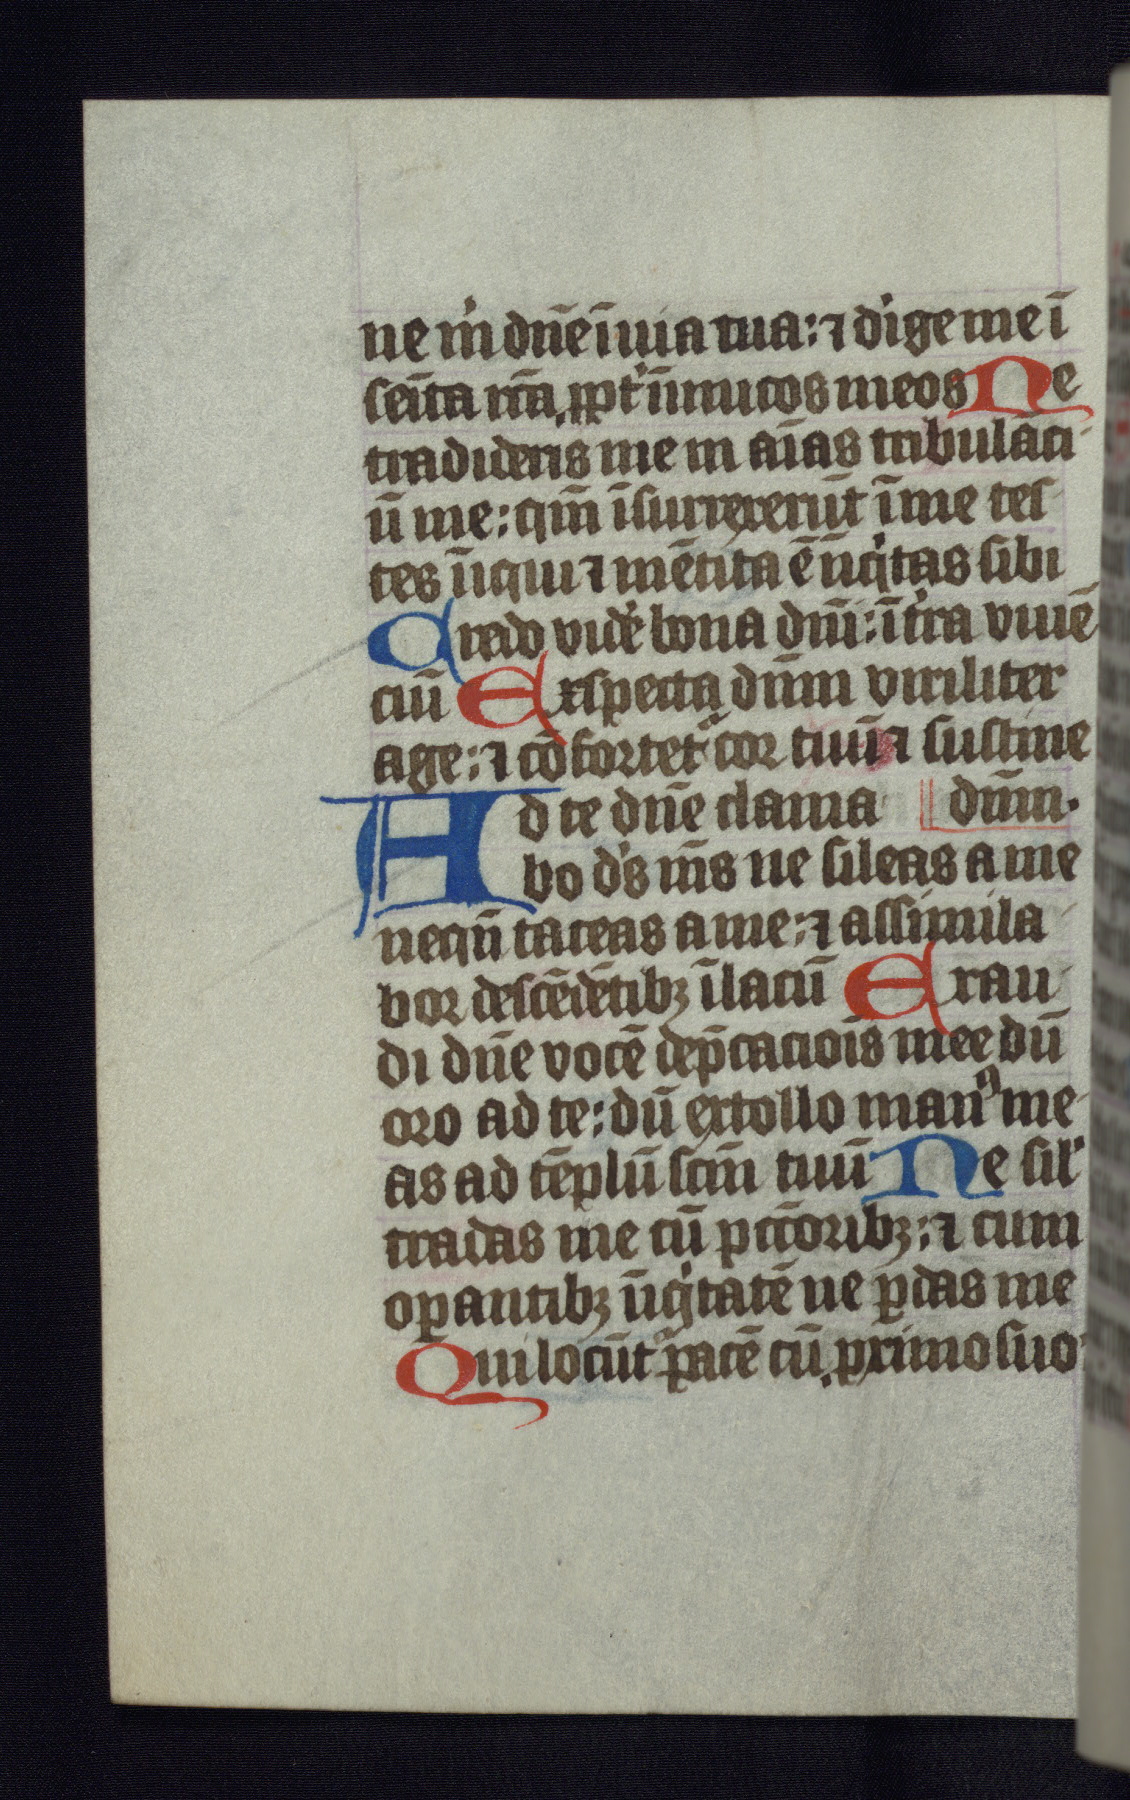 ne m̄ dn̄e ī uia tua: ⁊ dīge me ī
semīta rc̄a ꝓpt̄ inīmicos meos Ne
tradideris me in aīas tribulāci
ū me: qm̄ īsurrexerūt ī me tes
tes īiqui ⁊ mētita ē īiqⁱtas sibi
Credo vidē bona dn̄i: ī tr̄a viuē
ciū Exspecta dn̄m viriliter
age: ⁊ cōfortetᷣ cor tuū ⁊ sustine
Ad te dn̄e clama dn̄m.
bo ds̄ ms̄ ne sileas a me
nequn̄ taceas a me: ⁊ assimila
bor descēdētibꝫ ī lacū Exau
di dn̄e vocē dep̄cacioīs mee dū
oro ad te: dū extollo manꝰ me
as ad tēplū scm̄ tuū Ne sil̄
tradas me cū pcc̄oribꝫ: ⁊ cum
oꝑantibꝫ īiqⁱtatē ne ꝑdas me
Qui locūtᷣ pacē cū ꝓximo suo